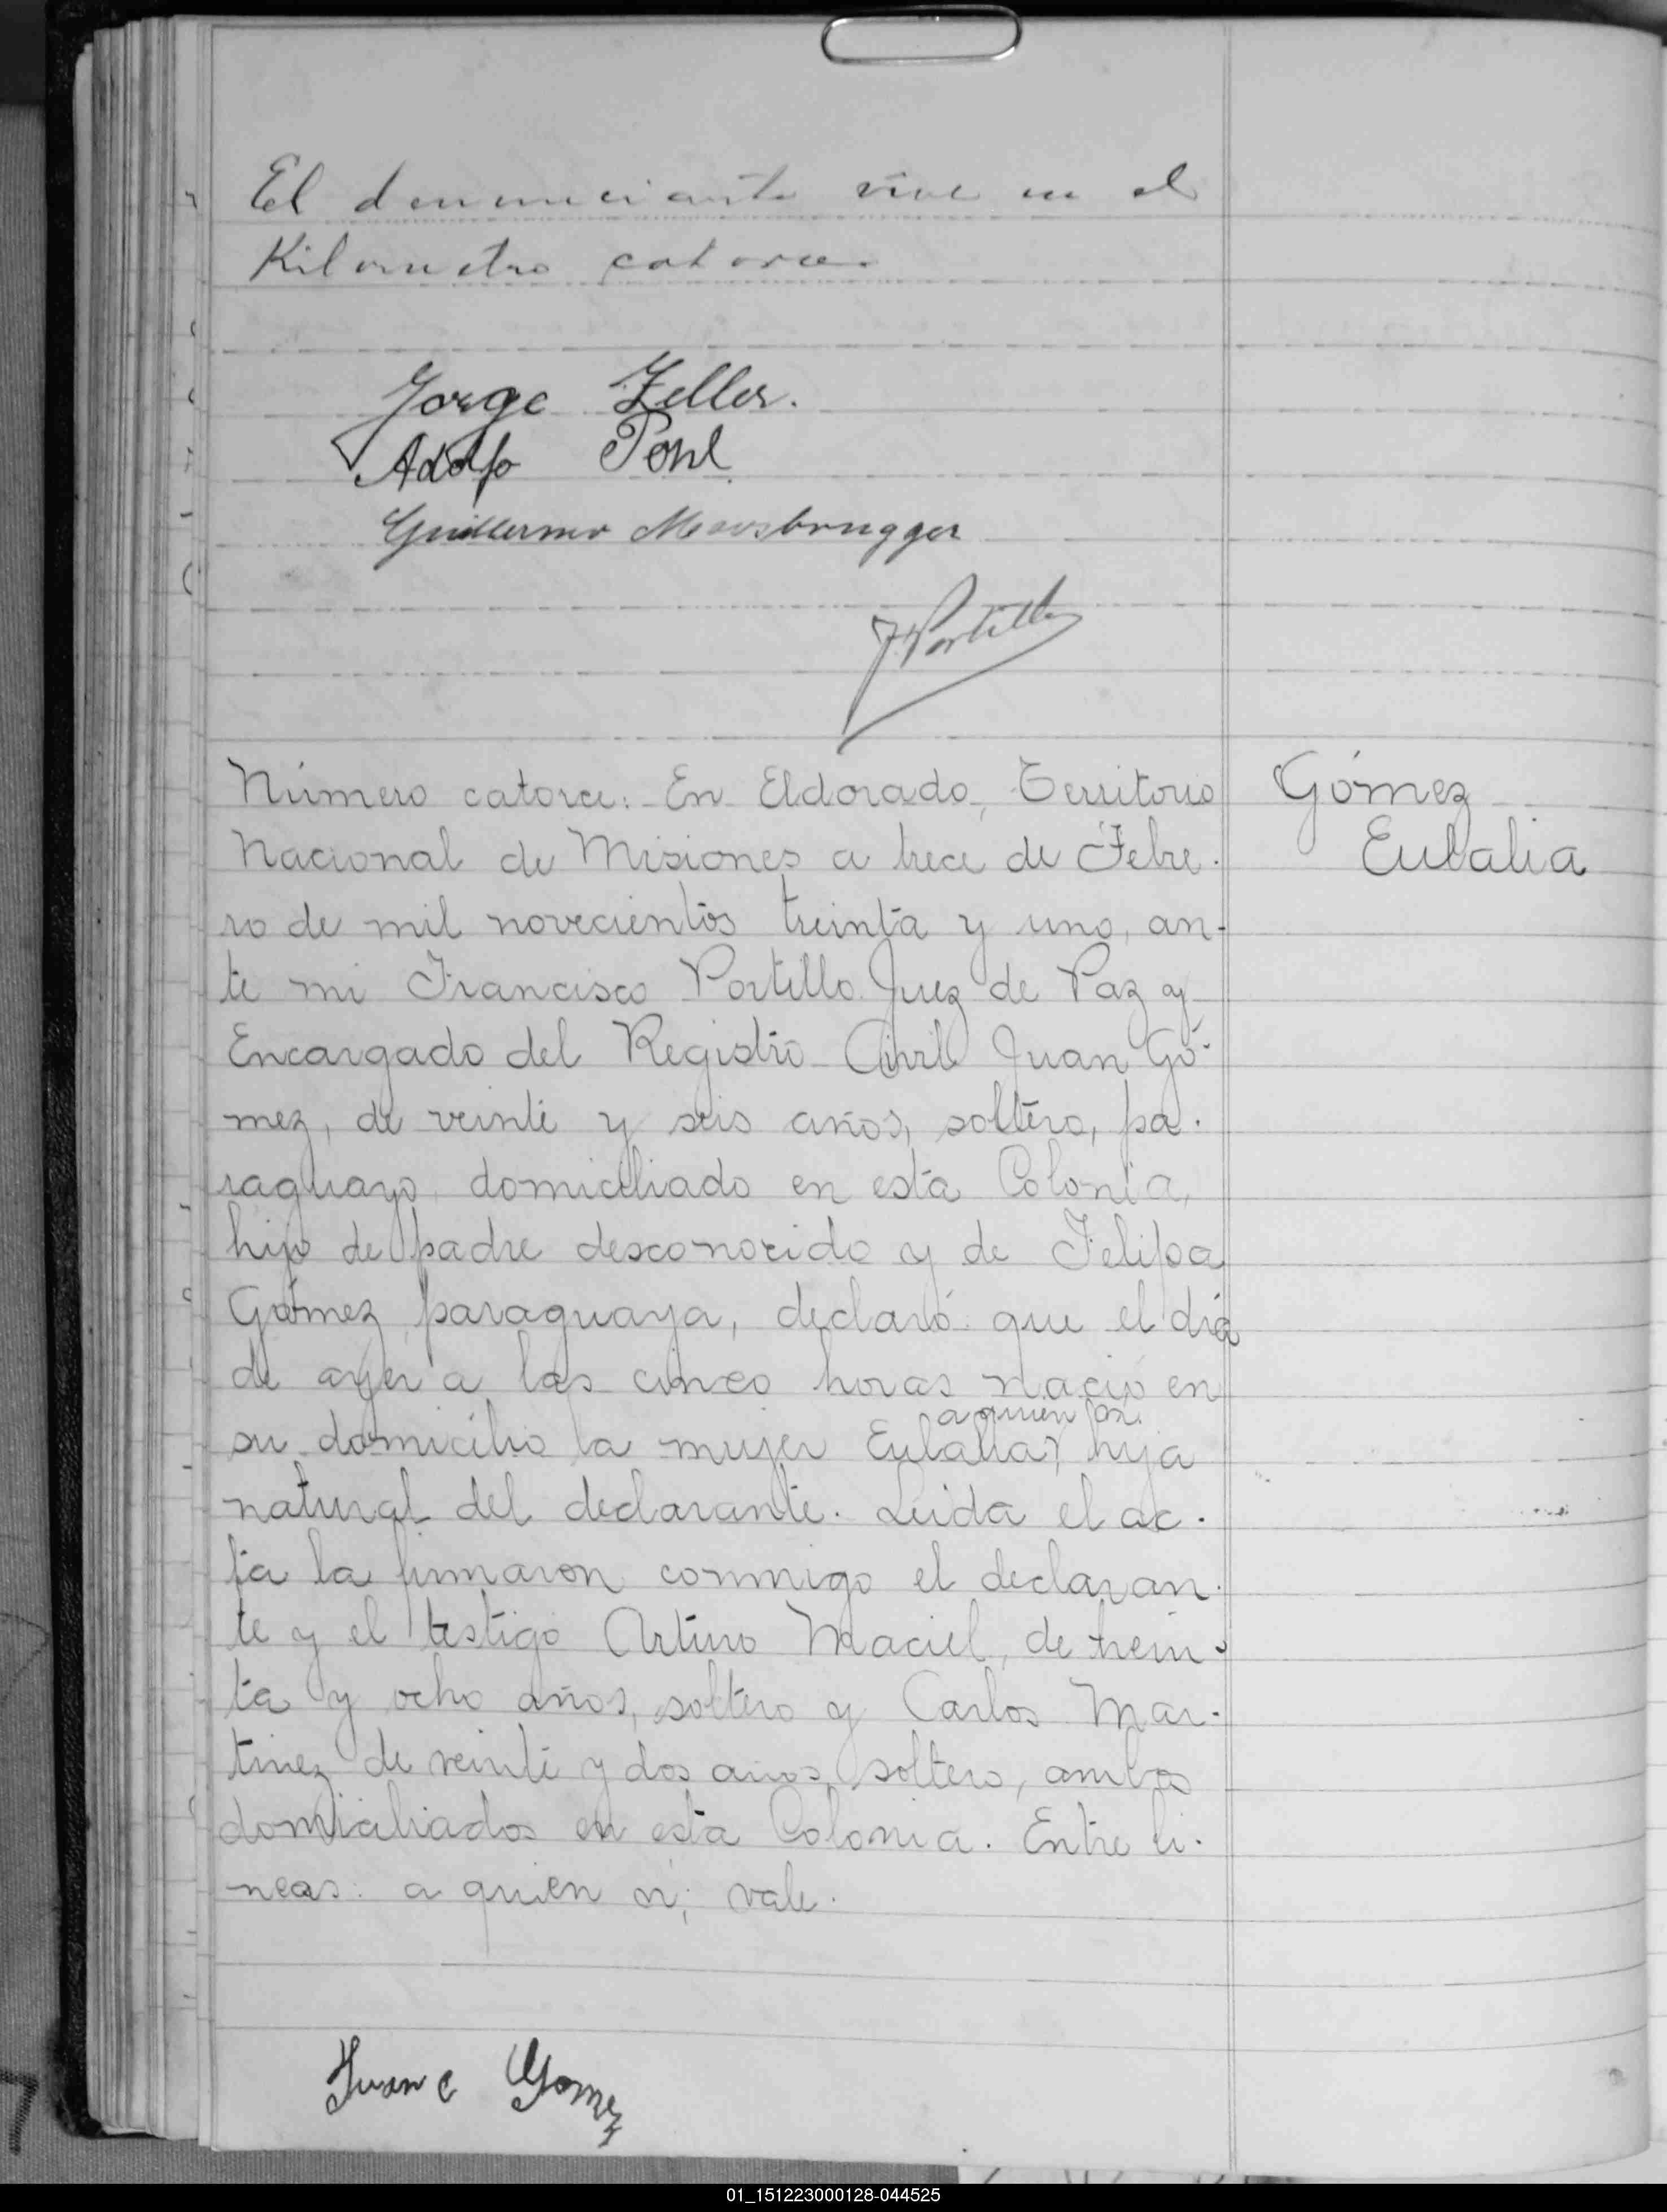 El denunciante vive en el
Kilometro catorce.
Jorge Zeller.
Adolfo Pohl
Guillermo Moosbrugger
F. Portillo
Número catorce: En Eldorado, Territorio
Nacional de Misiones a trece de Febre-
ro de mil novecientos treinta y uno, an-
te mi Francisco Portillo Juez de Paz y
Encargado del Registro Civil Juan Gó-
mez, de veinte y seis años, soltero, pa-
raguayo, domiciliado en esta Colonia,
hijo de padre desconocido y de Felipa
Gómez, paraguaya, declaró: que el día
de ayer a las cinco horas nació en
a quien
su domicilio la mujer Eulalia, hija
natural del declarante. Leida el ac-
ta la firmaron conmigo el declaran-
te y el testigo Arturo Maciel, de trein-
ta y ocho años, soltero y Carlos Mar-
tinez de veinte y dos años, soltero, ambos
domiciliados en esta Colonia. Entre lí-
neas: a quien vi; vale.
Juan C Gomez
Gómez
Eulalia
01_151223000128-044525